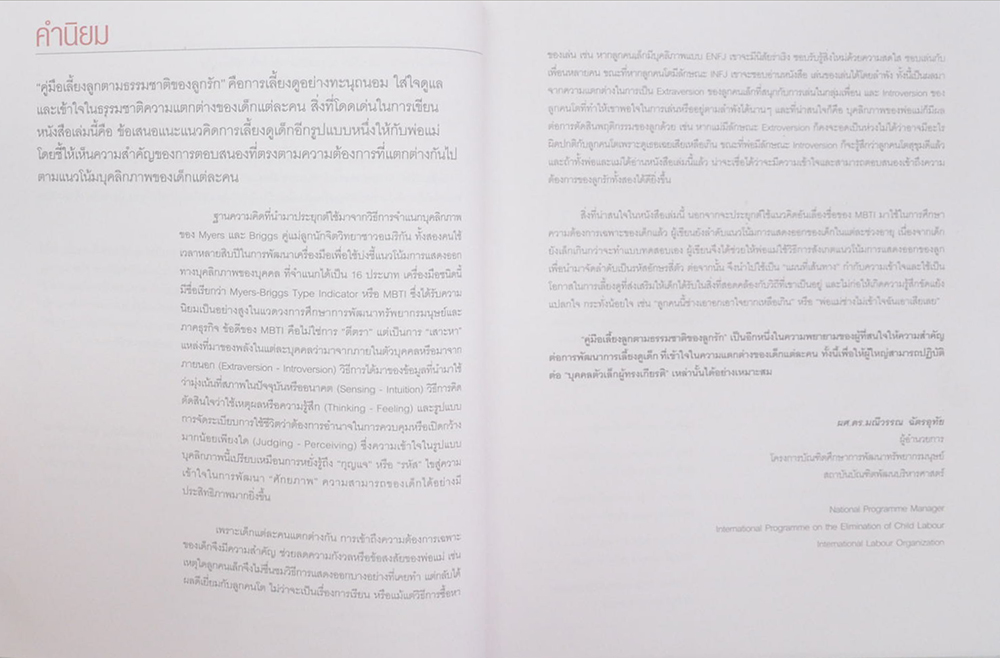 คำนิยม
"คู่มือเลี้ยงลูกตามธรรมชาติของลูกรัก" คือการเลี้ยงดูอย่างทะนุถนอม ใส่ใจดูแล
และเข้าใจในธรรมชาติความแตกต่างของเด็กแต่ละคน สิ่งที่โดดเด่นในการเขียน
หนังสือเล่มนี้คือ ข้อเสนอแนะแนวคิดการเลี้ยงดูเด็กอีกรูปแบบหนึ่งให้กับพ่อแม่
โดยชี้ให้เห็นความสำคัญของการตอบสนองที่ตรงตามความต้องการที่แตกต่างกันไป
ตามแนวโน้มบุคลิกภาพของเด็กแต่ละคน
ฐานความคิดที่นำมาประยุกต์ใช้มาจากวิธีการจำแนกบุคลิกภาพ
ของ Myers และ Briggs คู่แม่ลูกนักจิตวิทยาชาวอเมริกัน ทั้งสองคนใช้
เวลาหลายสิบปีในการพัฒนาเครื่องมือเพื่อใช้บ่งชี้แนวโน้มการแสดงออก
ทางบุคลิกภาพของบุคคล ที่จำแนกได้เป็น 16 ประเภท เครื่องมือชนิดนี้
มีชื่อเรียกว่า Myers-Briggs Type Indicator หรือ MBTI ซึ่งได้รับความ
นิยมเป็นอย่างสูงในแวดวงการศึกษาการพัฒนาทรัพยากรมนุษย์และ
ภาคธุรกิจ ข้อดีของ MBTI คือไม่ใช่การ "ตีตรา" แต่เป็นการ "เสาะหา"
แหล่งที่มาของพลังในแต่ละบุคคลว่ามาจากภายในตัวบุคคลหรือมาจาก
ภายนอก (Extraversion - Introversion) วิธีการได้มาของข้อมูลที่นำมาใช้
ว่ามุ่งเน้นที่สภาพในปัจจุบันหรืออนาคต (Sensing - Intuition) วิธีการคิด
ตัดสินใจว่าใช้เหตุผลหรือความรู้สึก (Thinking - Feeling) และรูปแบบ
การจัดระเบียบการใช้ชีวิตว่าต้องการอำนาจในการควบคุมหรือเปิดกว้าง
มากน้อยเพียงใด (Judging - Perceiving) ซึ่งความเข้าใจในรูปแบบ
บุคลิกภาพนี้เปรียบเหมือนการหยั่งรู้ถึง "กุญแจ" หรือ "รหัส" ไขสู่ความ
เข้าใจในการพัฒนา "ศักยภาพ" ความสามารถของเด็กได้อย่างมี
ประสิทธิภาพมากยิ่งขึ้น
เพราะเด็กแต่ละคนแตกต่างกัน การเข้าถึงความต้องการเฉพาะ
ของเด็กจึงมีความสำคัญ ช่วยลดความกังวลหรือข้อสงสัยของพ่อแม่ เช่น
เหตุใดลูกคนเล็กจึงไม่ชื่นชมวิธีการแสดงออกบางอย่างที่เคยทำ แต่กลับได้
ผลดีเยี่ยมกับลูกคนโต ไม่ว่าจะเป็นเรื่องการเรียน หรือแม้แต่วิธีการซื้อหา
ของเล่น เช่น หากลูกคนเล็กมีบุคลิกภาพแบบ ENFJ เขาจะมีนิสัยร่าเริง ชอบรับรู้สิ่งใหม่ด้วยความสดใส ชอบเล่นกับ
เพื่อนหลายคน ขณะที่หากลูกคนโตมีลักษณะ INFJ เขาจะชอบอ่านหนังสือ เล่นของเล่นได้โดยลำพัง ทั้งนี้เป็นผลมา
จากความแตกต่างในการเป็น Extraversion ของลูกคนเล็กที่สนุกกับการเล่นในกลุ่มเพื่อน และ Introversion ของ
ลูกคนโตที่ทำให้เขาพอใจในการเล่นหรืออยู่ตามลำพังได้นานๆ และที่น่าสนใจก็คือ บุคลิกภาพของพ่อแม่ก็มีผล
ต่อการตัดสินพฤติกรรมของลูกด้วย เช่น หากแม่มีลักษณะ Extroversion ก็คงจะอดเป็นห่วงไม่ได้ว่าอาจมีอะไร
ผิดปกติกับลูกคนโตเพราะดูเธอเฉยเสียเหลือเกิน ขณะที่พ่อมีลักษณะ Introversion ก็จะรู้สึกว่าลูกคนโตสุขุมดีแล้ว
และถ้าทั้งพ่อและแม่ได้อ่านหนังสือเล่มนี้แล้ว น่าจะเชื่อได้ว่าจะมีความเข้าใจและสามารถตอบสนองเข้าถึงความ
ต้องการของลูกรักทั้งสองได้ดียิ่งขึ้น
สิ่งที่น่าสนใจในหนังสือเล่มนี้ นอกจากจะประยุกต์ใช้แนวคิดอันเลื่องชื่อของ MBTI มาใช้ในการศึกษา
ความต้องการเฉพาะของเด็กแล้ว ผู้เขียนยังลำดับแนวโน้มการแสดงออกของเด็กในแต่ละช่วงอายุ เนื่องจากเด็ก
ยังเล็กเกินกว่าจะทำแบบทดสอบเอง ผู้เขียนจึงได้ช่วยให้พ่อแม่ใช้วิธีการสังเกตแนวโน้มการแสดงออกของลูก
เพื่อนำมาจัดลำดับเป็นรหัสอักษรสี่ตัว ต่อจากนั้น จึงนำไปใช้เป็น "แผนที่เส้นทาง" กำกับความเข้าใจและใช้เป็น
โอกาสในการเลี้ยงดูที่ส่งเสริมให้เด็กได้รับในสิ่งที่สอดคล้องกับวิถีที่เขาเป็นอยู่ และไม่ก่อให้เกิดความรู้สึกขัดแย้ง
แปลกใจ กระทั่งน้อยใจ เช่น "ลูกคนนี้ช่างเอาอกเอาใจยากเหลือเกิน" หรือ "พ่อแม่ช่างไม่เข้าใจฉันเอาเสียเลย"
"คู่มือเลี้ยงลูกตามธรรมชาติของลูกรัก" เป็นอีกหนึ่งในความพยายามของผู้ที่สนใจให้ความสำคัญ
ต่อการพัฒนาการเลี้ยงดูเด็ก ที่เข้าใจในความแตกต่างของเด็กแต่ละคน ทั้งนี้เพื่อให้ผู้ใหญ่สามารถปฏิบัติ
ต่อ "บุคคลตัวเล็กผู้ทรงเกียรติ" เหล่านั้นได้อย่างเหมาะสม
ผศ.ดร.มณีวรรณ ฉัตรอุทัย
ผู้อำนวยการ
โครงการบัณฑิตศึกษาการพัฒนาทรัพยากรมนุษย์
สถาบันบัณฑิตพัฒนบริหารศาสตร์
National Programme Manager
International Programme on the Elimination of Child Labour
International Labour Organization